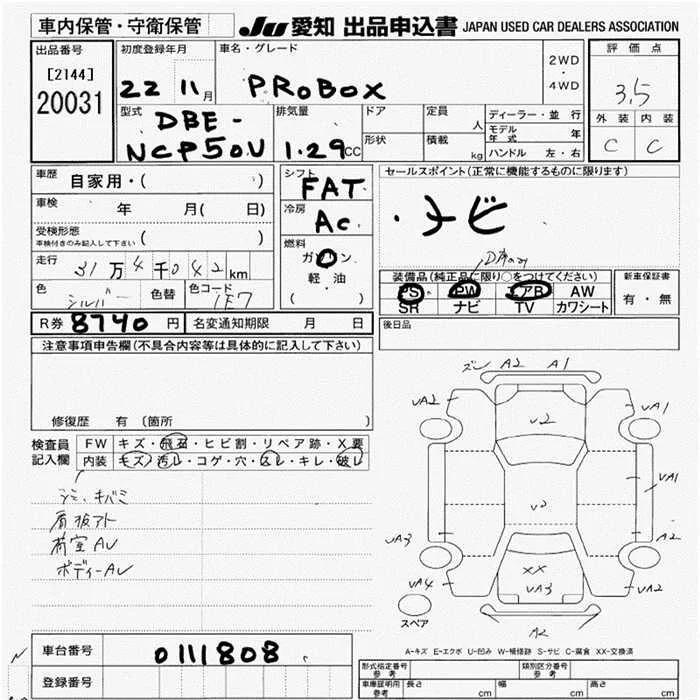 車内保管・守衛保管 JU 愛知 出品申込書 JAPAN USED CAR DEALERS ASSOCIATION
出品番号 初度登録年月 車名・グレード 2WD・4WD 評価点
[2144]
20031 22 11月 PROBOX 3.5
型式 排気量 ドア 定員 人 ディーラー・並行 外装 内装
DBE- モデル年式 年
NCP50V 1.29CC 形状 積載 kg ハンドル 左・右 C C
車歴 自家用・( ) シフト FAT セールスポイント(正常に機能するものに限ります)
車検 年 月( 日) 冷房 AC ・ナビ
受検形態 ( )
車検付きのみ記入して下さい
燃料 ガソリン
軽油
( )
走行 31万4千042km 装備品(純正品に限り○をつけてください) 新車保証書
色 シルバー 色替 色コード 1E7 PS PW エアB AW 有・無
SR ナビ TV カワシート
R券 8740円 名変通知期限 月 日 後日品
注意事項申告欄(不具合内容等は具体的に記入して下さい)
ズレ A2 A1
修復歴 有 〔箇所 〕
検査員記入欄 FW キズ・飛石・ヒビ割・リペア跡・X要
内装 キズ・汚レ・コゲ・穴・スレ・キレ・破レ
シミ、キバミ
看板アト
荷室AU
ボディーAU
UA2 U2 UA1
U2 UA1
UA3 A2
UA4 XX UA3 UA2
スペア
A2
A-キズ E-エクボ U-凹み W-補修跡 S-サビ C-腐食 XX-交換済
車台番号 0111808
登録番号
型式指定番号 参考 類別区分番号 参考
車庫証明用 参考 長さ cm 幅 cm 高さ cm